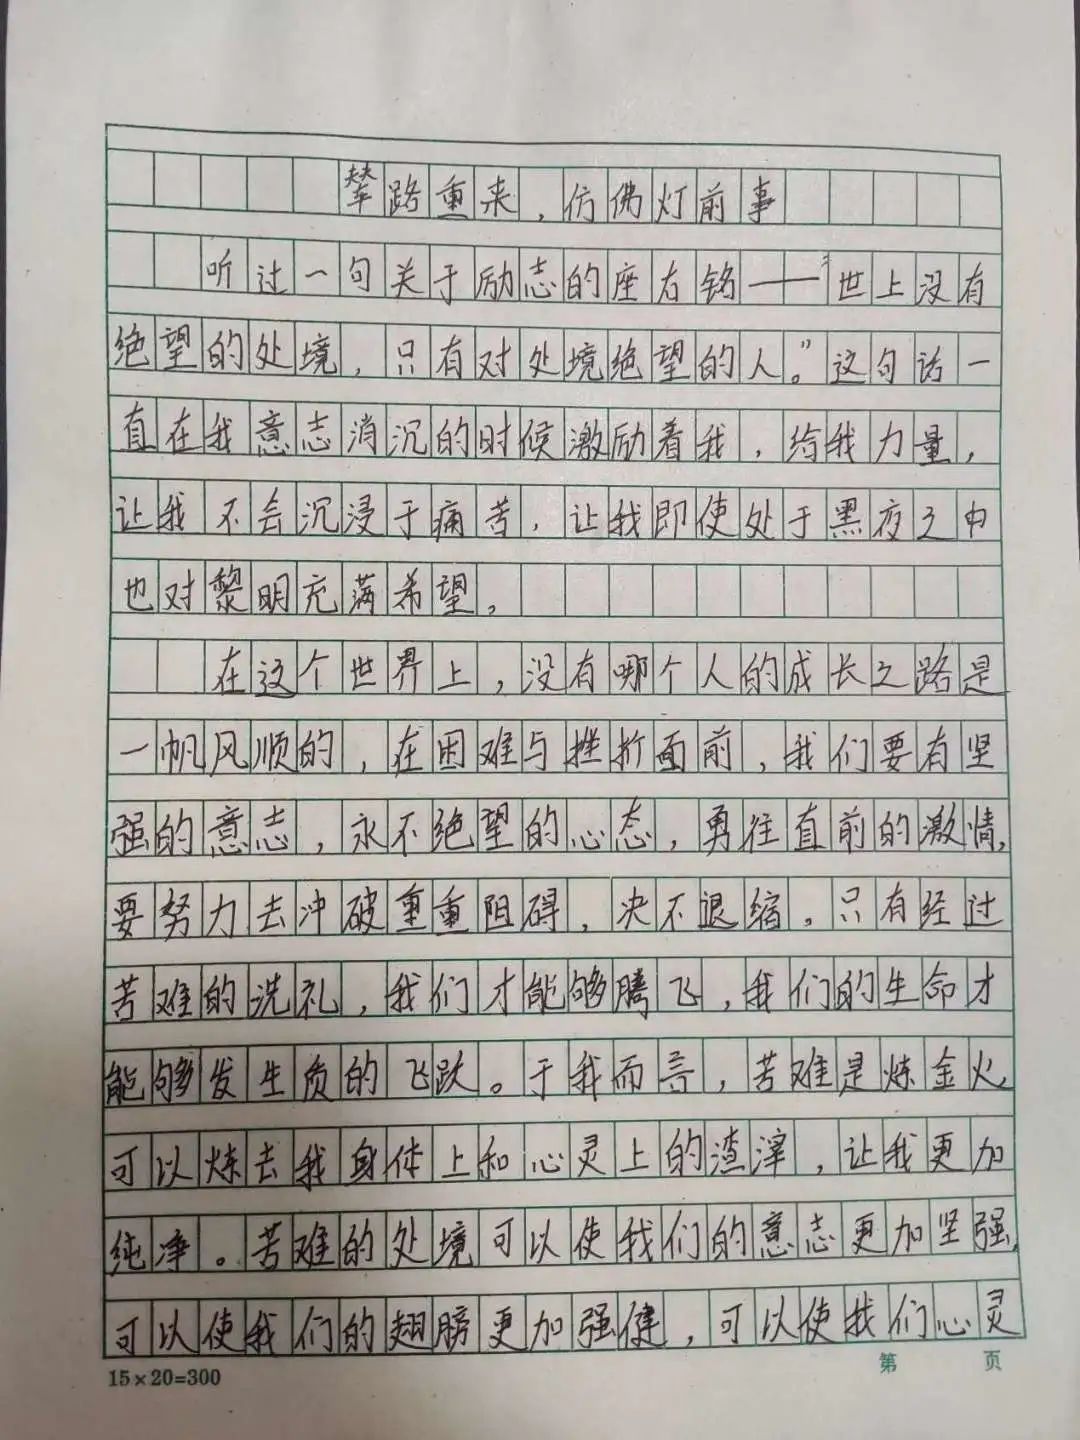 辇路重来，仿佛灯前事
听过一句关于励志的座右铭——“世上没有
绝望的处境，只有对处境绝望的人。”这句话一
直在我意志消沉的时候激励着我，给我力量，
让我不会沉浸于痛苦，让我即使处于黑夜之中
也对黎明充满希望。
在这个世界上，没有哪个人的成长之路是
一帆风顺的，在困难与挫折面前，我们要有坚
强的意志，永不绝望的心态，勇往直前的激情，
要努力去冲破重重阻碍，决不退缩。只有经过
苦难的洗礼，我们才能够腾飞，我们的生命才
能够发生质的飞跃。于我而言，苦难是炼金火，
可以炼去我身体上和心灵上的渣滓，让我更加
纯净。苦难的处境可以使我们的意志更加坚强，
可以使我们的翅膀更加强健，可以使我们心灵
15×20=300
第 页